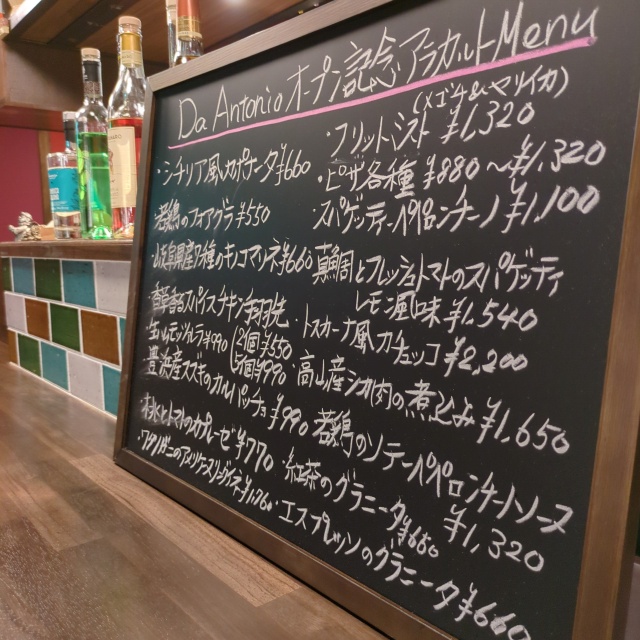 Da Antonio オープン記念 アラカルトMenu
・シチリア風カポナータ¥660
若鶏のフォアグラ¥550
・山岐阜県産7種のキノコマリネ¥660
香草香るスパイスチキン手羽先
2個¥550
5個¥990
モッツァレラ¥990
豊浜産スズキのカルパッチョ¥990
桃とトマトのカプレーゼ¥770
・ワタリガニのアメリケーヌリングイネ¥1,760
(メゴチ&ヤリイカ)
・フリットミスト ¥1,320
・ピザ各種 ¥880〜¥1,320
スパゲッティーペペロンチーノ¥1,100
真鯛とフレッシュトマトのスパゲッティ
レモン風味¥1,540
・トスカーナ風カチュッコ¥2,200
・高山産シカ肉の煮込み¥1,650
若鶏のソテーペペロンチーノソース
¥1,320
・紅茶のグラニータ¥660
・エスプレッソのグラニータ¥660